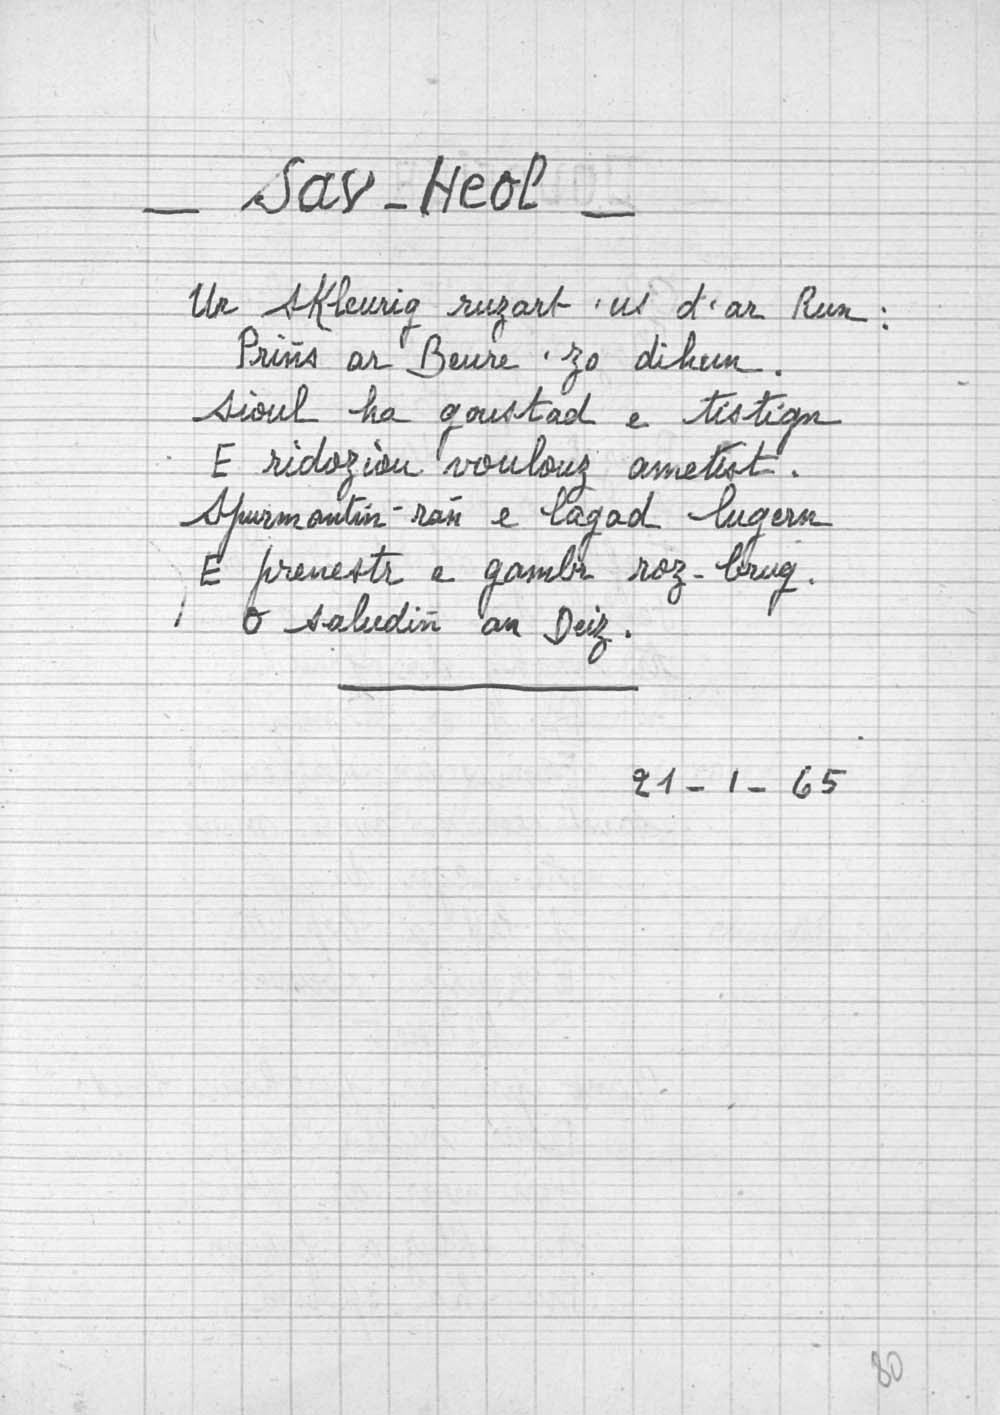 _ Sav-Heol _
Ur skleurig ruzart 'us d'ar Run :
Priñs ar Beure 'zo dihun.
Sioul ha goustad e tistign
E ridoziou voulouz ametist.
Spurmantin-rañ e lagad lugern
E prenestr e gambr roz-brug.
O saludiñ an Deiz.
21-1-65
80